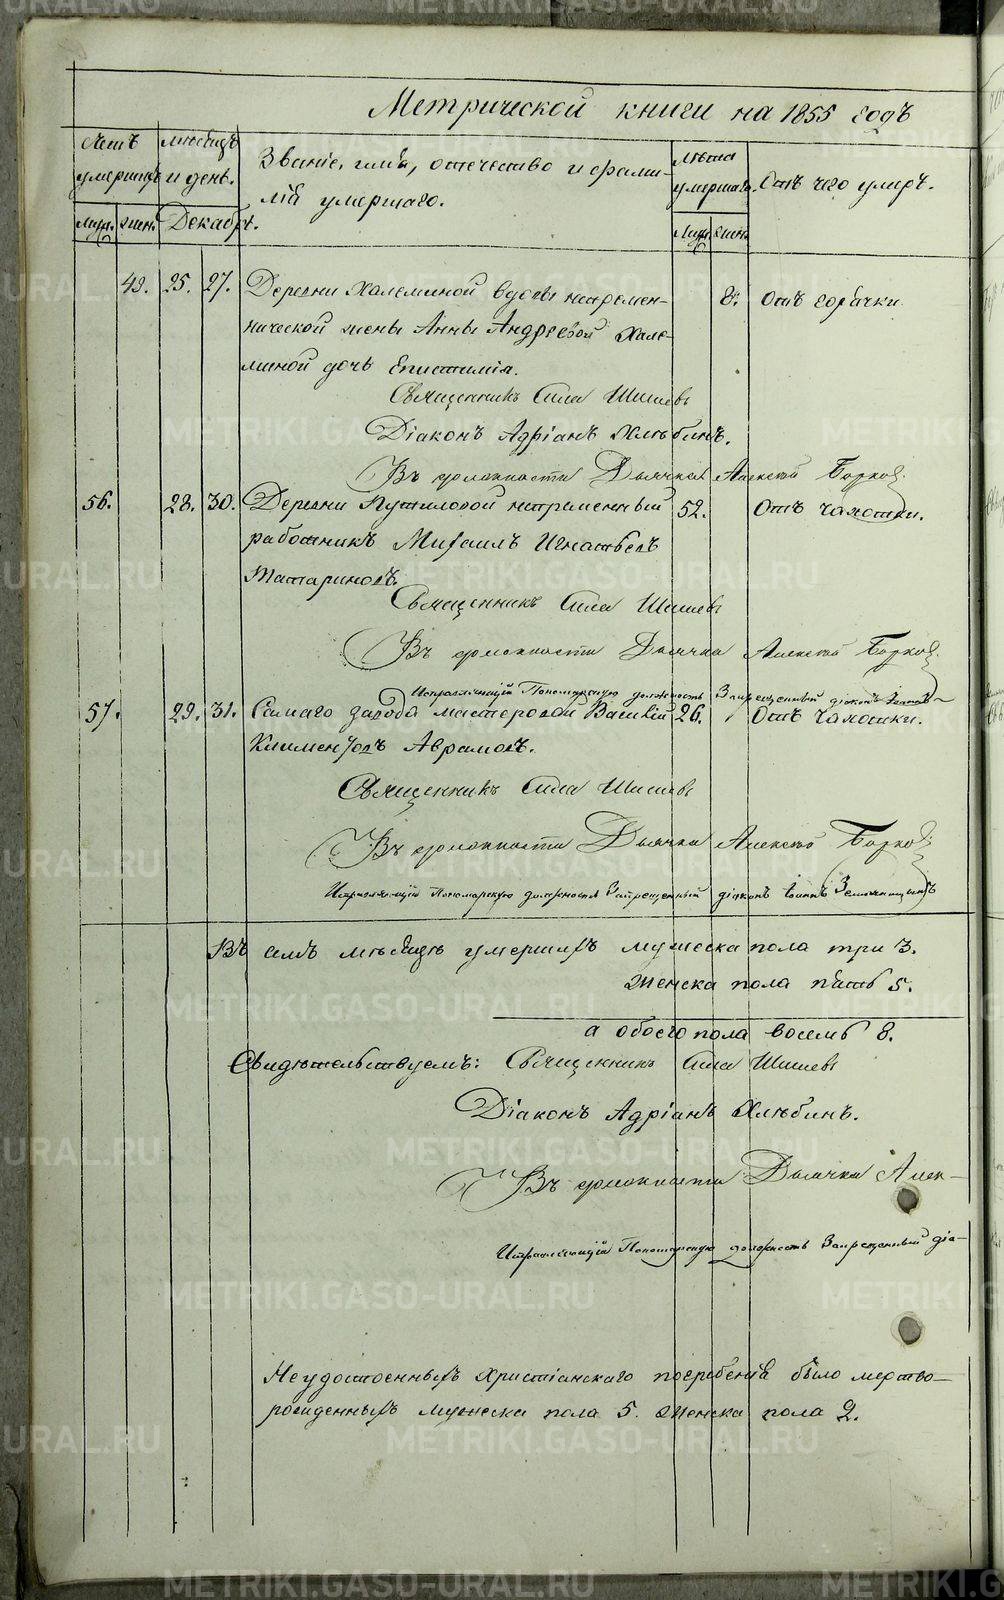 Метрической книги на 1855 годъ
Счетъ умершихъ
Мѣсяцъ и день.
Званіе, имя, отечество и фами-
лія умершаго.
Лѣта умершаго.
Отъ чего умеръ.
Муж. Жен. Декабрь. Муж. Жен.
49. 25. 27. Деревни Халеминой вдовы непремен- 8. Отъ горячки.
нической жены Анны Андреевой Хале-
миной дочь Епистимія.
Священникъ Сила Шишевъ
Діаконъ Адріанъ Хлѣбинъ.
Въ должности Дьячка Алексѣй
56. 28. 30. Деревни Путиловой непременный 52. Отъ чахотки.
работникъ Михаилъ Игнатьевъ
Татариновъ.
Священникъ Сила Шишевъ
Въ должности Дьячка Алексѣй
Исправляющій Пономарскую должность Запрещенный діаконъ
57. 29. 31. Самаго завода мастеровой Василій 26. Отъ чахотки.
Климентовъ Аврамовъ.
Священникъ Сила Шишевъ
Въ должности Дьячка Алексѣй
Исправляющій Пономарскую должность Запрещенный діаконъ Іоаннъ
Въ семъ мѣсяцѣ умершихъ мужеска пола три 3.
Женска пола пять 5.
а обоего пола восемь 8.
Свидѣтельствуемъ: Священникъ Сила Шишевъ
Діаконъ Адріанъ Хлѣбинъ.
Въ должности Дьячка Алек-
Исправляющій Пономарскую должность Запрещенный діа-
Неудостоенныхъ христіанскаго погребенія было мертво-
рожденныхъ мужеска пола 5. Женска пола 2.
METRIKI.GASO-URAL.RU